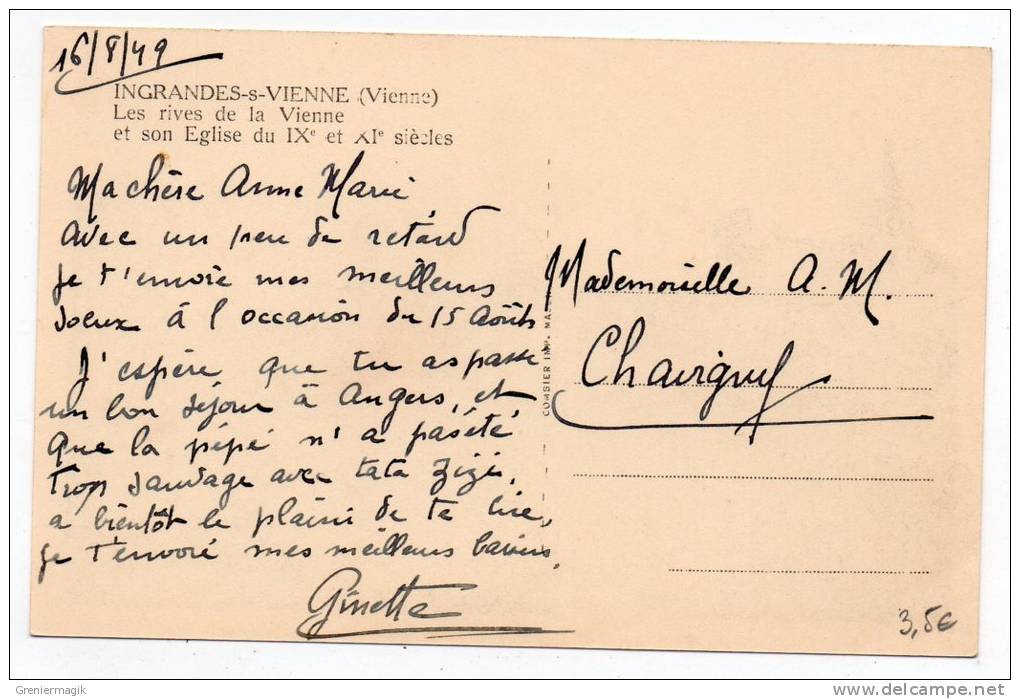 16/8/49
INGRANDES-s-VIENNE (Vienne)
Les rives de la Vienne
et son Eglise du IXe et XIe siècles
Ma chère Anne Marie
Avec un peu de retard
je t'envoie mes meilleurs
voeux à l'occasion du 15 Août
J'espère que tu as passé
un bon séjour à Angers, et
que la pépé n'a pas été
trop sauvage avec tata Zizi,
a bientôt le plaisir de te lire,
je t'envoie mes meilleurs baisers,
Ginette
COMBIER IMP. MA
Mademoiselle A. M.
Chavigny
3,5€
Greniermagik
www.delcampe.net